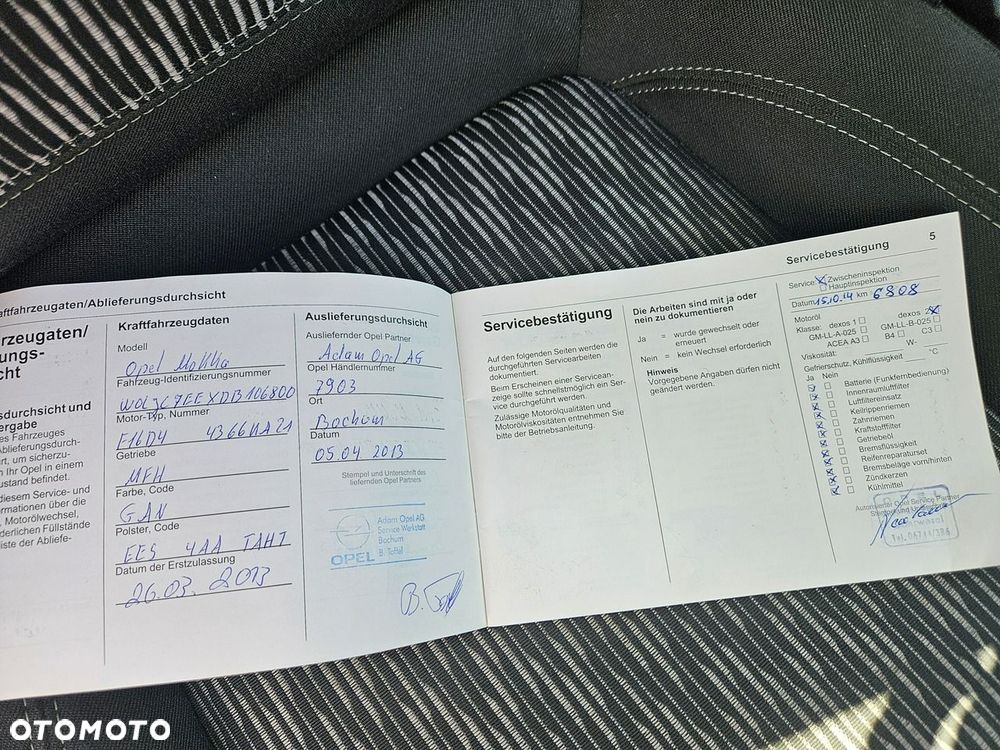 aftfahrzeugaten/Ablieferungsdurchsicht
rzeugaten/
ungs-
cht
sdurchsicht und
ergabe
es Fahrzeuges
Ablieferungsdurch-
rt, um sicherzu-
n Ihr Opel in einem
ustand befindet.
diesem Service- und
ormationen über die
, Motorölwechsel,
rderlichen Füllstände
iste der Abliefe-
Kraftfahrzeugdaten
Modell
Opel Mokka
Fahrzeug-Identifizierungsnummer
W0LJC7EEXDB106800
Motor-Typ, Nummer
E16D4 4366NA21
Getriebe
MFH
Farbe, Code
GAN
Polster, Code
EES 4AA TAHT
Datum der Erstzulassung
26.03.2013
Auslieferungsdurchsicht
Ausliefernder Opel Partner
Adam Opel AG
Opel Händlernummer
7903
Ort
Bochum
Datum
05.04 2013
Stempel und Unterschrift des
liefernden Opel Partners
Adam Opel AG
Service Werkstatt
Bochum
OPEL
Servicebestätigung
5
Servicebestätigung
Auf den folgenden Seiten werden die
durchgeführten Servicearbeiten
dokumentiert.
Beim Erscheinen einer Servicean-
zeige sollte schnellstmöglich ein Ser-
vice durchgeführt werden.
Zulässige Motorölqualitäten und
Motorölviskositäten entnehmen Sie
bitte der Betriebsanleitung.
Die Arbeiten sind mit ja oder
nein zu dokumentieren
Ja = wurde gewechselt oder
erneuert
Nein = kein Wechsel erforderlich
Hinweis
Vorgegebene Angaben dürfen nicht
geändert werden.
Service: Zwischeninspektion
Hauptinspektion
Datum 15.10.14 km 6808
Motoröl
Klasse: dexos 1 dexos 2
GM-LL-A-025 GM-LL-B-025
ACEA A3 B4 C3
Viskosität: W-
Gefrierschutz, Kühlflüssigkeit °C
Ja Nein
Batterie (Funkfernbedienung)
Innenraumluftfilter
Luftfiltereinsatz
Keilrippenriemen
Zahnriemen
Kraftstofffilter
Getriebeöl
Bremsflüssigkeit
Reifenreparaturset
Bremsbeläge vorn/hinten
Zündkerzen
Kühlmittel
Autorisierter Opel Service Partner
OTOMOTO